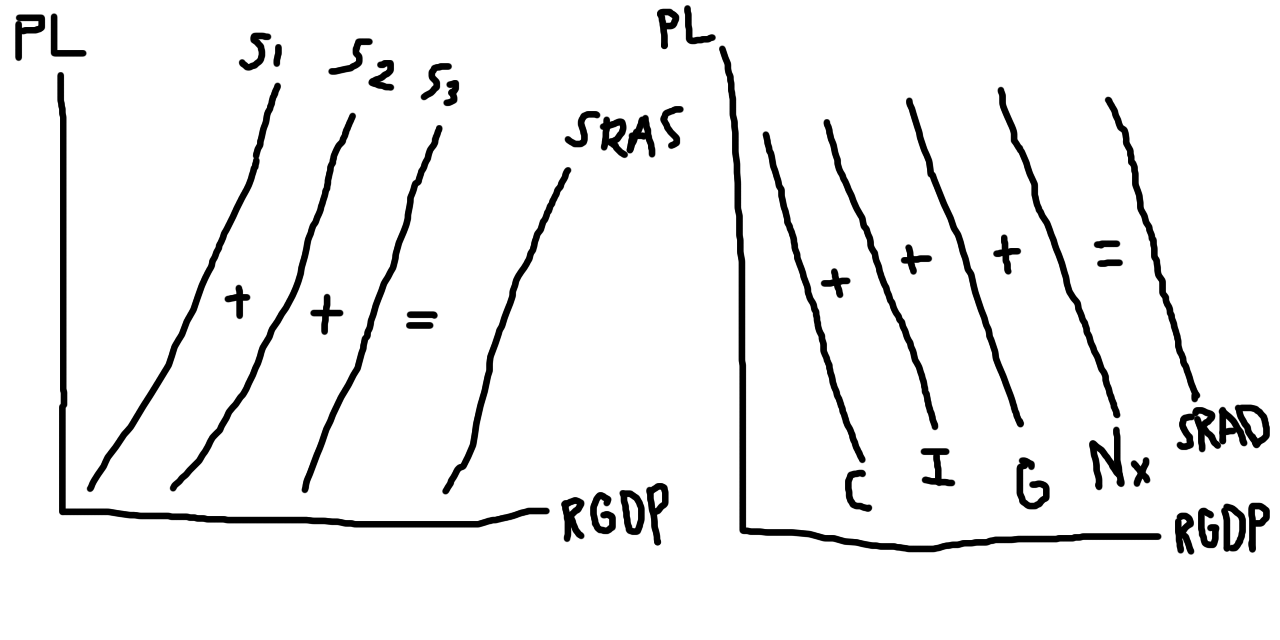 PL
S1
S2
S3
SRAS
+
+
=
RGDP
PL
+
+
+
=
C
I
G
Nx
SRAD
RGDP